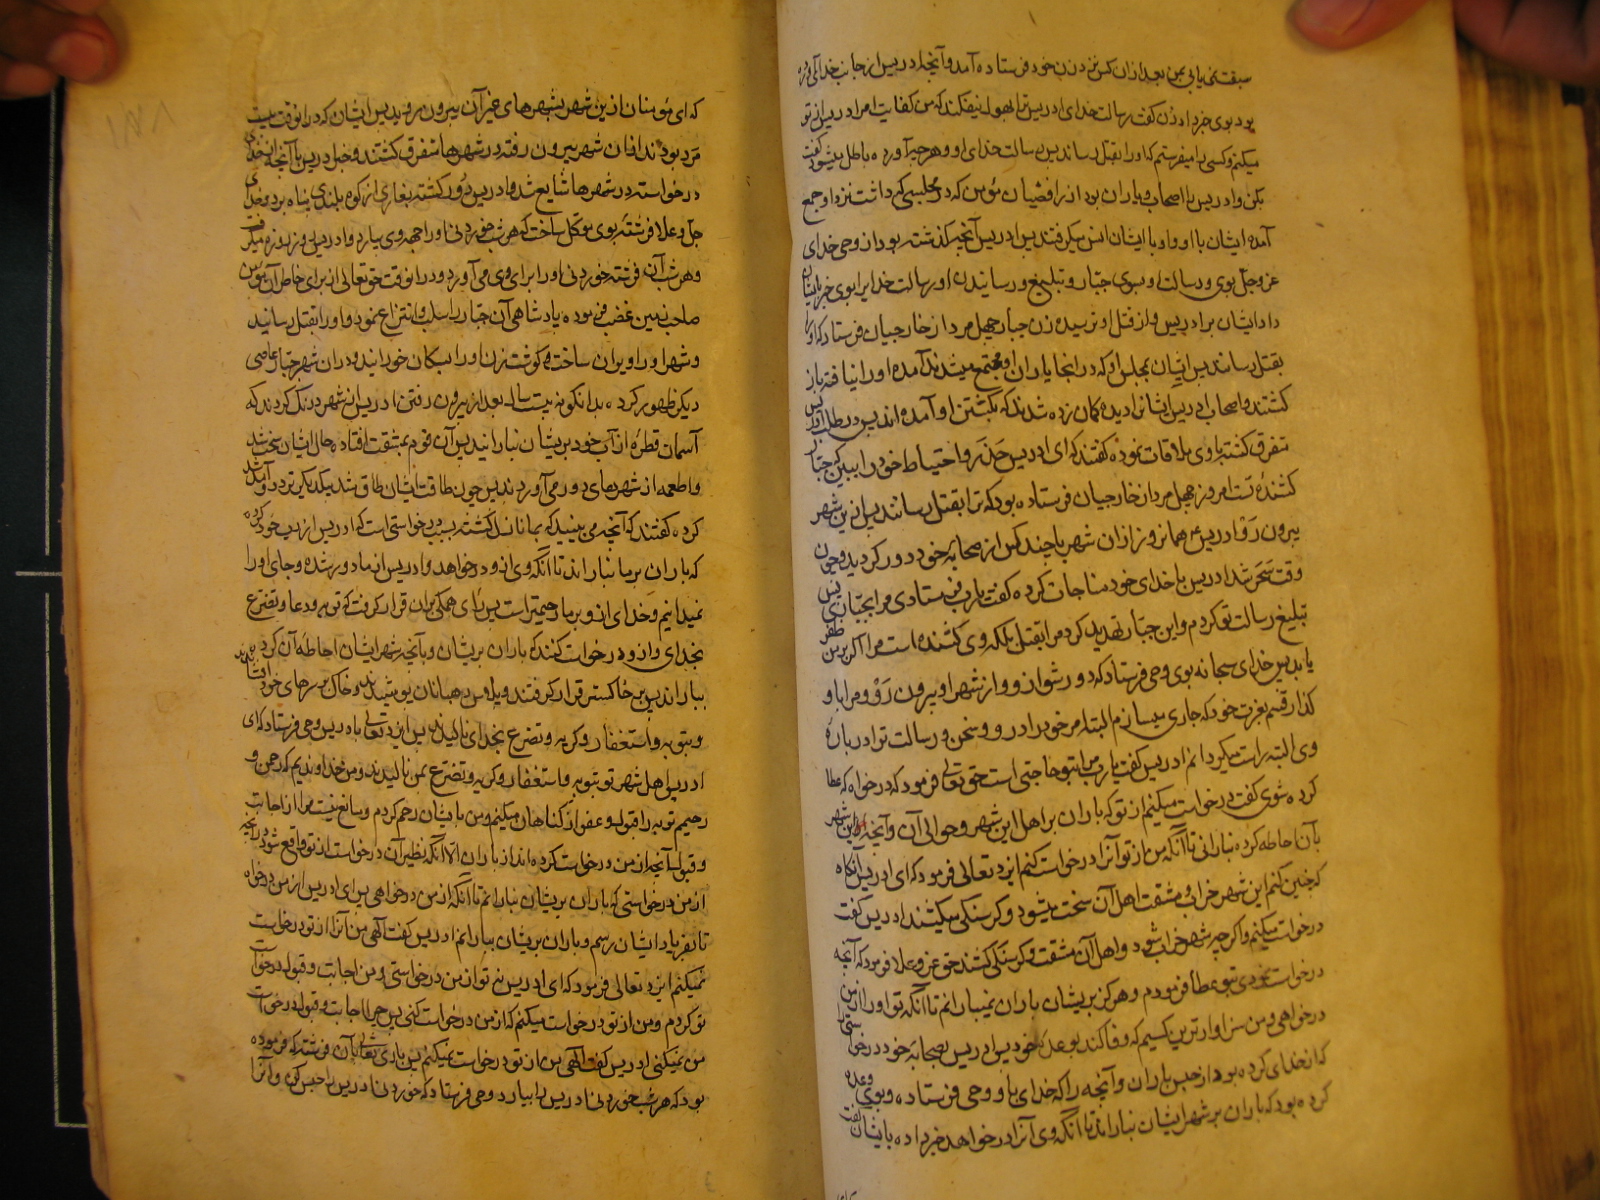 سبقت نمی یابی بمن بعد ازان کس نزد زن خود فرستاده آمد و آنچه ادریس از جانب خدا آورده
بود بوی خبر داد زن کفت رسالت خدای ادریس ترا بهول نیفکند که من کفایت امر ادریس از تو
میکنم و کسی را میفرستم که او را بقتل رساند پس رسالت خدای او و هر چه آورده باطل میشود کفت
بکن و ادریس را اصحاب و یاران بود از رافضیان مؤمن که در مجلسی که داشت نزد او جمع
آمده ایشان با او و او با ایشان انس میکرفتند پس ادریس آنچه کذشته بود از وحی خدای
عز و جل بوی و رسالت او بسوی جبار و تبلیغ و رسانیدن او رسالت خدا را بوی خبر بایشان
داد ایشان بر ادریس و از قتل او ترسیده زن جبار چهل مرد از خارجیان فرستاد که او را
بقتل رسانند پس ایشان بمجلس او که در انجا یاران او مجتمع میشدند آمده او را نیافته باز
کشتند و اصحاب ادریس ایشانرا دیده کمان زده شدند که بکشتن او آمده اند پس در طلب ادریس
متفرق کشته با وی ملاقات نموده کفتند که ای ادریس حذر و احتیاط خود را ببین که جبار
کشندهٔ تست امروز چهل مرد از خارجیان فرستاده بود که ترا بقتل رسانند پس ازین شهر
بیرون رو ادریس ع همانروز ازان شهر با چند کس از صحابهٔ خود دور کردید و چون
وقت سحر شد ادریس با خدای خود مناجات کرده کفت یا رب فرستادی مرا بجباری پس
تبلیغ رسالت تو کردم و این جبار تهدید کرد مرا بقتل بلکه وی کشنده است مرا اکر بر من ظفر
یابد پس خدای سبحانه بوی وحی فرستاد که دور شو از وی و از شهر او بیرون رو و مرا با او
کذار قسم بعزت خود که جاری میسازم البته امر خود را در وی و سخن و رسالت ترا درباره
وی البته راست میکردانم ادریس کفت یا رب مرا بتو حاجتی است حق تعالی فرمود که درخواه که عطا
کرده شوی کفت درخواست میکنم از تو که باران بر اهل این شهر و حوالی آن و آنچه این شهر
بآن احاطه کرده نبارانی تا آنکه من از تو آنرا درخواست کنم ایزد تعالی فرمود که ای ادریس آنکاه
که چنین کنم این شهر خراب و مشقت اهل آن سخت میشود و کرسنکی میکشند ادریس کفت
درخواست میکنم و اکر چه شهر خراب شود و اهل آن مشقت و کرسنکی کشند حق عز و علا فرمود که آنچه
درخواست نمودی بتو عطا فرمودم و هرکز بریشان باران نمیبارانم تا آنکه تو او را از من
درخواهی و من سزاوارترین کسیم که وفا کند بوعدهٔ خود پس ادریس بصحابهٔ خود درخواستی را
که از خدای کرده بود از حبس باران و آنچه را که خدای با او وحی فرستاده و بوی وعده
کرده بود که باران بر شهر ایشان نباراند تا آنکه وی آنرا درخواهد خبر داده بایشان کفت
که ای مؤمنان ازین شهر بشهرهای غیر آن بیرون روید پس ایشان که در انوقت بیست
مرد بودند ازان شهر بیرون رفته در شهرها متفرق کشتند و خبر ادریس با آنچه از خدای
درخواسته در شهرها شایع شد و ادریس دور کشته بغاری از کوه بلندی پناه برد و خدای
جل و علا فرشتهٔ بوی موکل ساخت که هر شب خوردنی او را جهة وی بیارد و ادریس روز روزه میکرفت
و هر شب آن فرشته خوردنی او را برای وی می آورد و در انوقت حق تعالی از برای خاطر آن مؤمن
صاحب زمین غضب فرموده پادشاهی آن جبار را سلب و انتزاع نمود و او را بقتل رسانید
و شهر او را ویران ساخته و کوشت زن او را بسکان خورانید و دران شهر جباری عاصی
دیکر ظهور کرده بدانکونه بیست سال بعد از بیرون رفتن ادریس ازان شهر درنک کردند که
آسمان قطرهٔ از آب خود بریشان نبارانید پس آن قوم بمشقت افتاده حال ایشان سخت شد
و اطعمه از شهرهای دور می آوردند پس چون طاقت ایشان طاق شد بیکدیکر تردد و آمد شد
کرده کفتند که آنچه می بینید که بما نازل کشته بسبب درخواستی است که ادریس از رب خود کرده
که باران بر ما نباراند تا آنکه وی از و درخواهد و ادریس از ما دور شده و جای او را
نمیدانیم و خدای از و بر ما رحیمتر است پس رای همکی بران قرار کرفت که توبه و دعا و تضرع
بخدای و از و درخواست کنند که باران بریشان و بآنچه شهر ایشان احاطه آن کرده
بباراند پس بر خاکستر قرار کرفتند و پلاس رهبانان پوشیدند و خاک بر سرهای خود افشاندند
و بتوبه و استغفار و کریه و تضرع بخدای نالیدند پس ایزد تعالی بادریس وحی فرستاد که ای
ادریس اهل شهر تو بتوبه و استغفار و کریه و تضرع بمن نالیدند و من خداوندیم که رحمن و
رحیم توبه را قبول و عفو از کناهان میکنم و من بایشان رحم کردم و مانع نیست مرا از اجابت
و قبول آنچه از من درخواست کرده اند از باران الا آنکه نظیر آن درخواست از تو واقع شود در آنچه
از من درخواستی که باران بریشان نبارانم تا آنکه از من درخواهی پس ای ادریس از من درخواه
تا بفریاد ایشان رسم و باران بریشان ببارانم ادریس کفت آلهی من آنرا از تو درخواست
نمیکنم ایزد تعالی فرمود که ای ادریس نه تو از من درخواستی و من اجابت و قبول درخواست
تو کردم و من از تو درخواست میکنم که از من درخواست کنی پس چرا اجابت و قبول درخواست
من نمیکنی ادریس کفت آلهی من از تو درخواست نمیکنم پس باری تعالی بآن فرشته که فرموده
بود که هر شب خوردنی ادریس را بیارد وحی فرستاد که خوردنی ادریس را حبس کن و آنرا